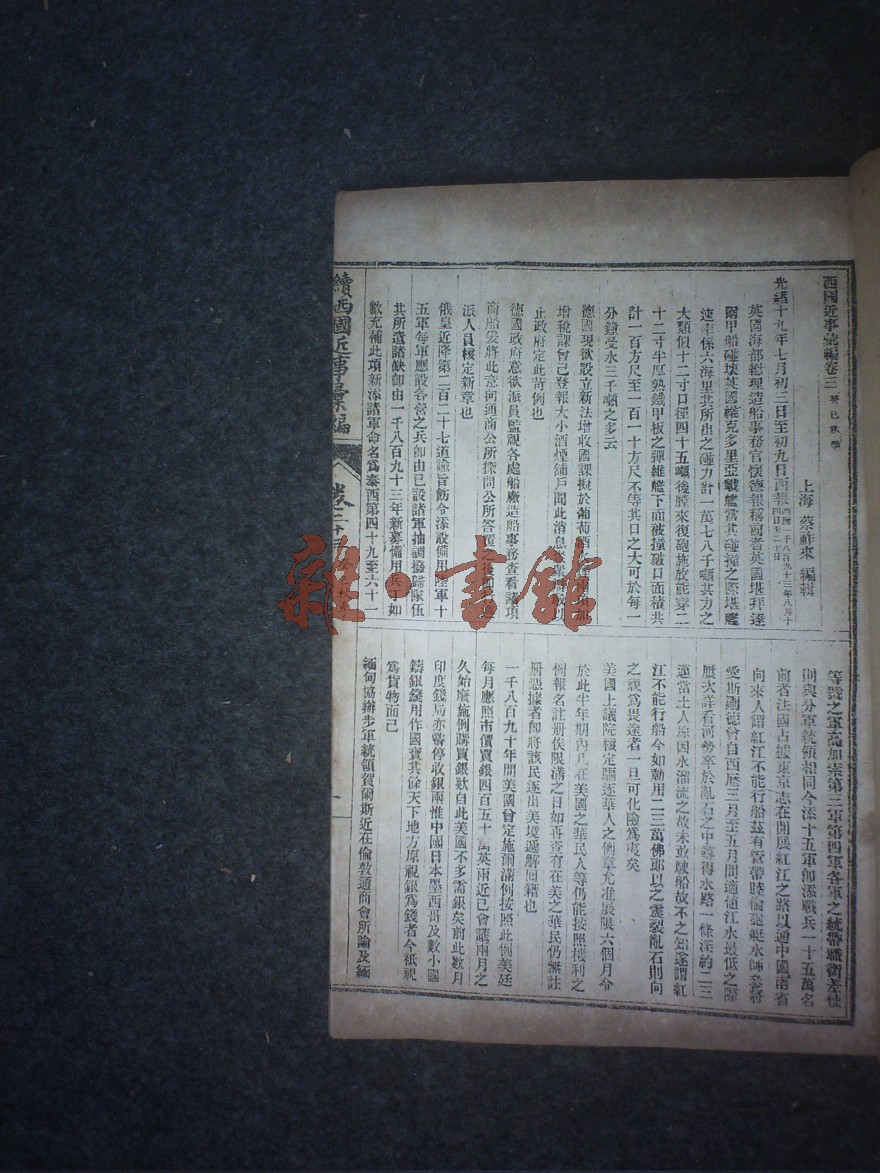 西國近事彙編卷三 癸巳秋季
上海 蔡祚來 編輯
光緒十九年七月初三日至初九日西報 西歷一千八百九十三年八月十四日至二十日
英國海部總理造船事務官懷德報稱前者英國堪拜達
爾甲船碰壞英國維克多里亞戰艦當其碰撞之際堪艦
速率係六海里共所出之碰力計一萬七八千噸其力之
大類似十二寸口徑四十五噸後膛來復砲施放能穿二
十二寸半厚熟鐵甲板之彈維艦下面被撞破口面積共
計一百方尺至一百一十方尺不等其口之大可於每一
分鐘受水三千噸之多云
德國現欲設立新法增收國課擬於葡萄酒
增稅課會已登報大小酒煙鋪戶聞此消息
止政府定此苛例也
德國政府意欲派員監視各處船廠造船事務查看諸項
商船爰將此意向通商公所探問公所答覆之後
派人員核定新章也
俄皇近降第二百二十七道諭旨飭令添設備用陸軍十
五軍每軍應設各營之兵卽由已設諸軍抽調撥歸隊伍
其所遺諸缺卽由一千八百九十三年新募備用兵丁如
數充補此項新添諸軍命名爲泰西第四十九至六十一
續西國近事彙編
卷二十三
等號之軍高加索第三軍第四軍各軍之統帶職銜差使
則與分軍統領相同今添十五軍卽添戰兵一十五萬名
前者法國占據東京志在開展紅江之路以通中國南省
向來人謂紅江不能行船茲有管帶睦倫砲艇水師叅將
愛斯剛德會自西歷三月至五月間適值江水最低之際
屢次詳看河勢卒於亂石之中尋得水路一條深約二三
邁當土人原因水溜流之故未敢駛船故不之知遂謂紅
江不能行船今如動用二三萬佛郎以之轟裂亂石則向
之視爲畏途者一旦可化險爲夷矣
美國上議院核定驅逐華人之例章允准展限六個月令
於此半年期內凡在美國之華民人等仍能按照擬利之
例報名註册俟限滿之日如再查有在美之華民仍無註
册憑據者卽將該民逐出美境遞解回籍也
一千八百九十年間美國曾定施爾滿例按照此例美廷
每月應照市價買銀四百五十萬英兩近已會議兩月之
久始廢施例購買銀欵自此美國不多需銀矣前此數月
印度錢局亦暫停收銀兩惟中國日本墨西哥及數小國
鑄銀錢用作國寶其餘天下地方原視銀爲錢者今祇視
爲貨物而已
緬甸協辦步軍統領賀爾斯近在倫敦通商會所論及緬
雜·書館